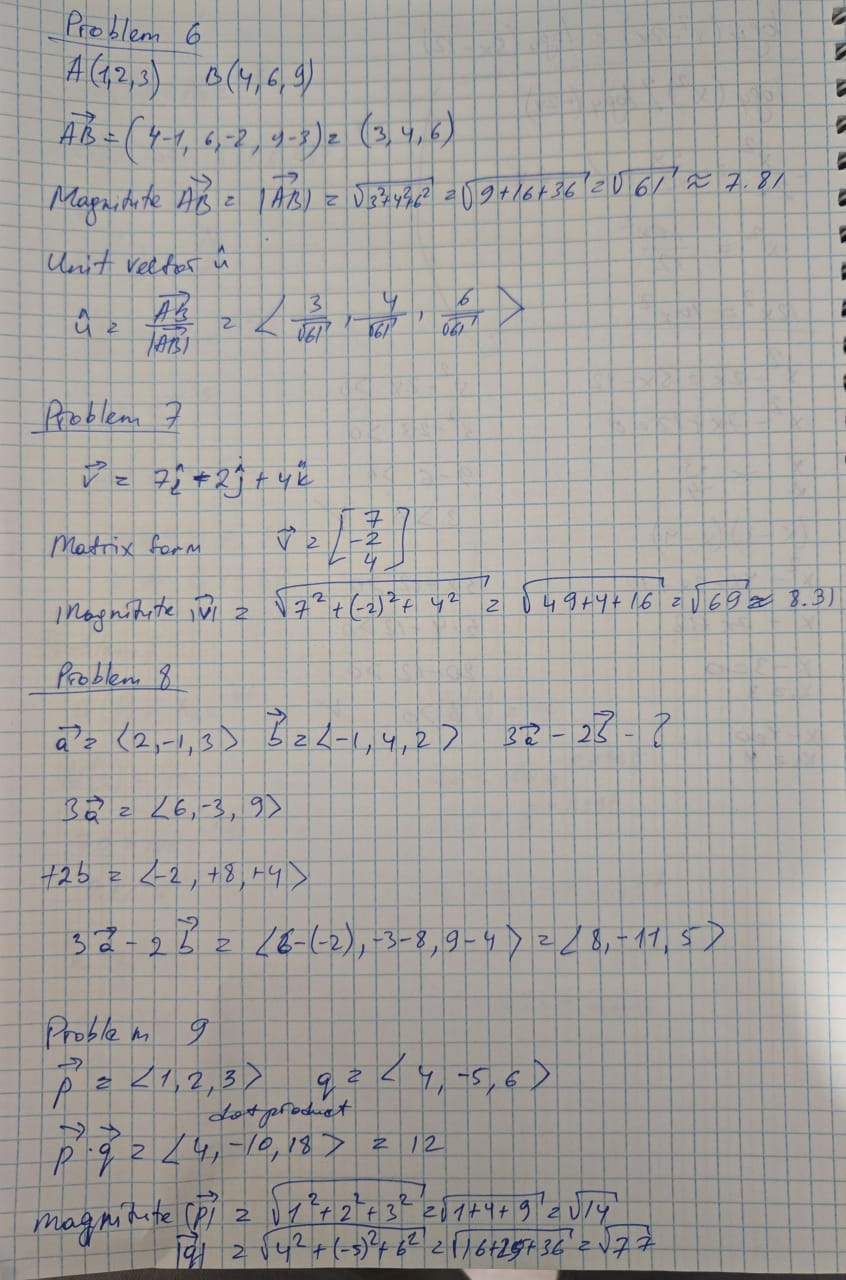 Problem 6
A(1,2,3) B(4,6,9)
AB→ = (4-1, 6,-2, 9-3) = (3,4,6)
Magnitute AB→ = |AB→| = √3²+4²+6² = √9+16+36 = √61 ≈ 7.81
Unit vector û
û = AB→/|AB→| = ⟨3/√61, 4/√61, 6/√61⟩
Problem 7
v→ = 7î - 2ĵ + 4k̂
Matrix form v→ = [7 -2 4]
Magnitute |v→| = √7² + (-2)² + 4² = √49+4+16 = √69 ≈ 8.31
Problem 8
a→ = ⟨2,-1,3⟩ b→ = ⟨-1,4,2⟩ 3a→ - 2b→ - ?
3a→ = ⟨6,-3,9⟩
+2b = ⟨-2,+8,+4⟩
3a→ - 2b→ = ⟨6-(-2),-3-8,9-4⟩ = ⟨8,-11,5⟩
Problem 9
p→ = ⟨1,2,3⟩ q = ⟨4,-5,6⟩
dot product
p→·q→ = ⟨4,-10,18⟩ = 12
magnitute |p→| = √1²+2²+3² = √1+4+9 = √14
|q→| = √4²+(-5)²+6² = √16+25+36 = √77